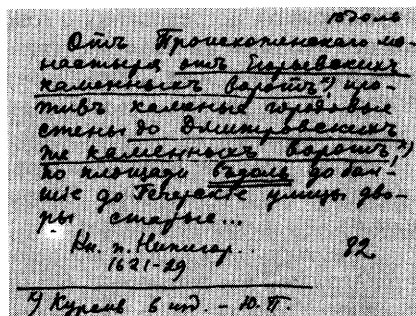 вдоль
Отъ Происхоженскаго мо-
настыря отъ Егорьевскихъ
каменныхъ воротъ*) про-
тивъ каменые городовые
стены до Дмитровскихъ
же каменныхъ воротъ,*)
по площади вдоль до баш-
ни до Печерские улицы дво-
ры старые...
Кн. п. Нижегор. 82
1621-29
*) Курсив в изд. – Ю. П.